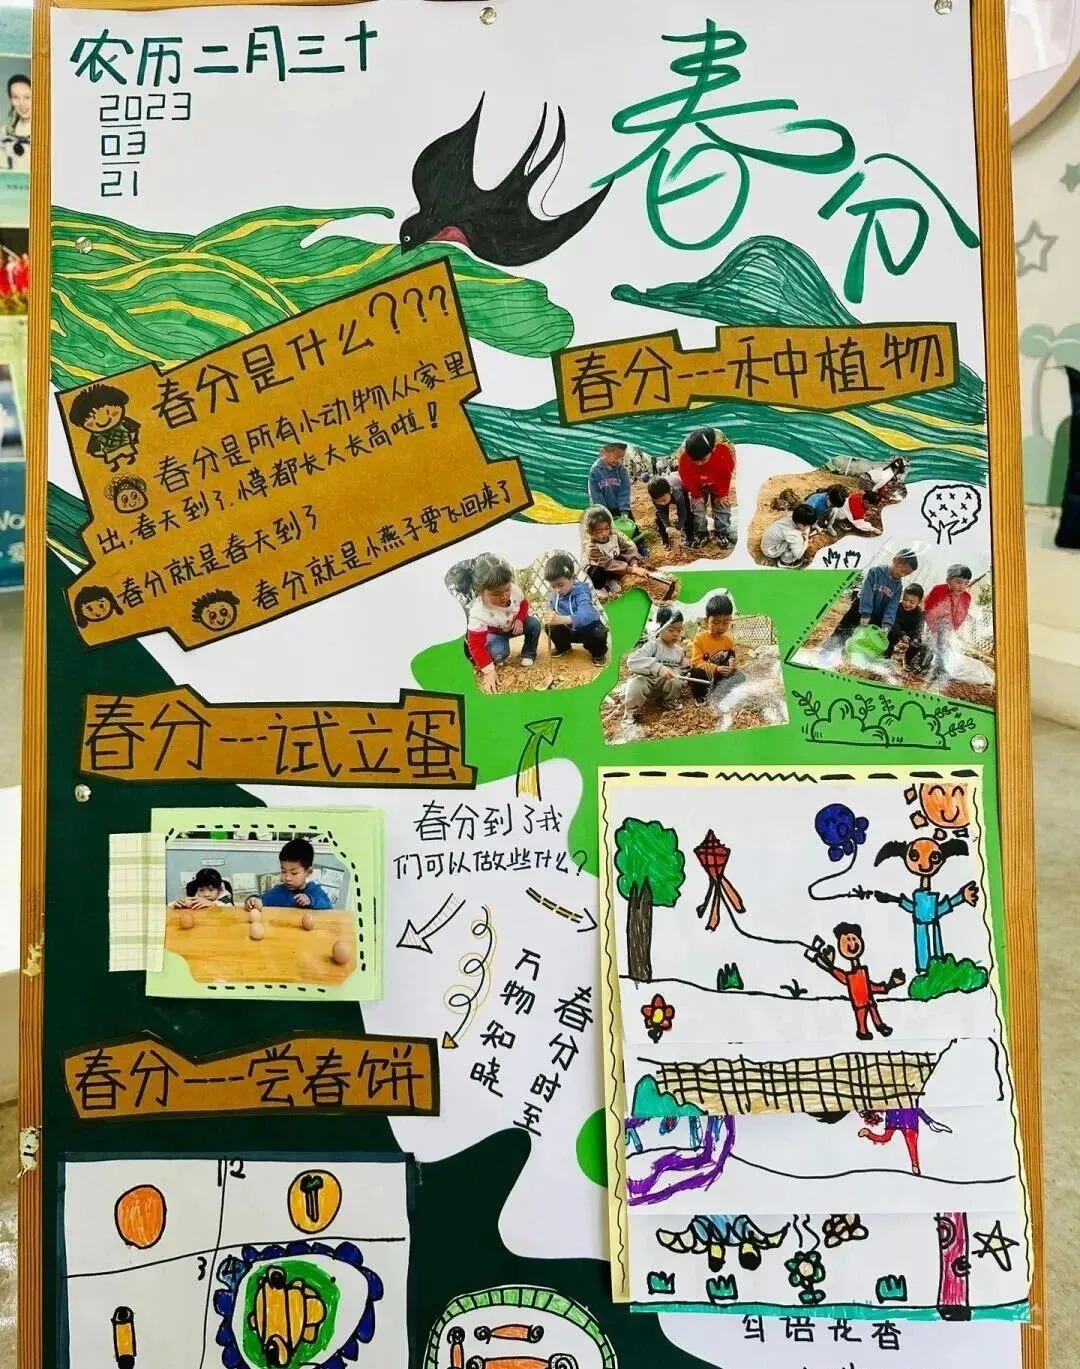 农历二月三十
2023
03
21
春分
春分是什么???
春分是所有小动物从家里
出,春天到了,小草都长大长高啦!
春分就是春天到了
春分就是小燕子要飞回来了
春分---种植物
春分---试立蛋
春分到了我
们可以做些什么?
春分时至
万物知晓
春分---尝春饼
1 2
3 4
鸟语花香